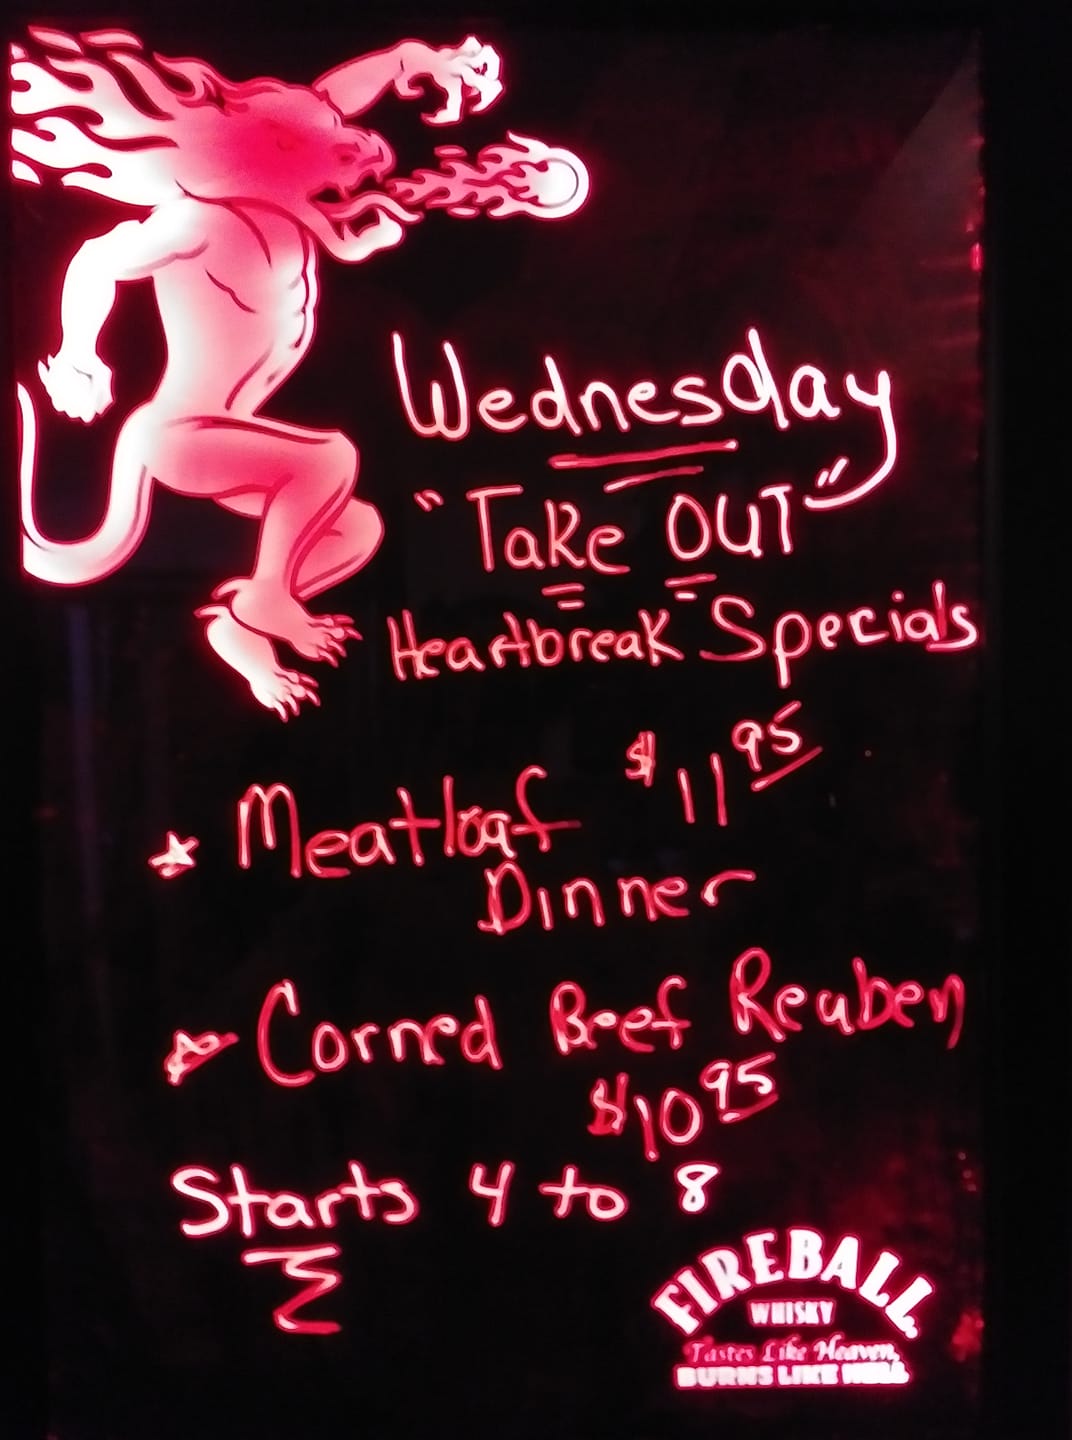 Wednesday
"Take OUT"
Heartbreak Specials
Meatloaf $11 95
Dinner
Corned Beef Reuben
$10 95
Starts 4 to 8
FIREBALL
WHISKY
Tastes Like Heaven,
BURNS LIKE HELL